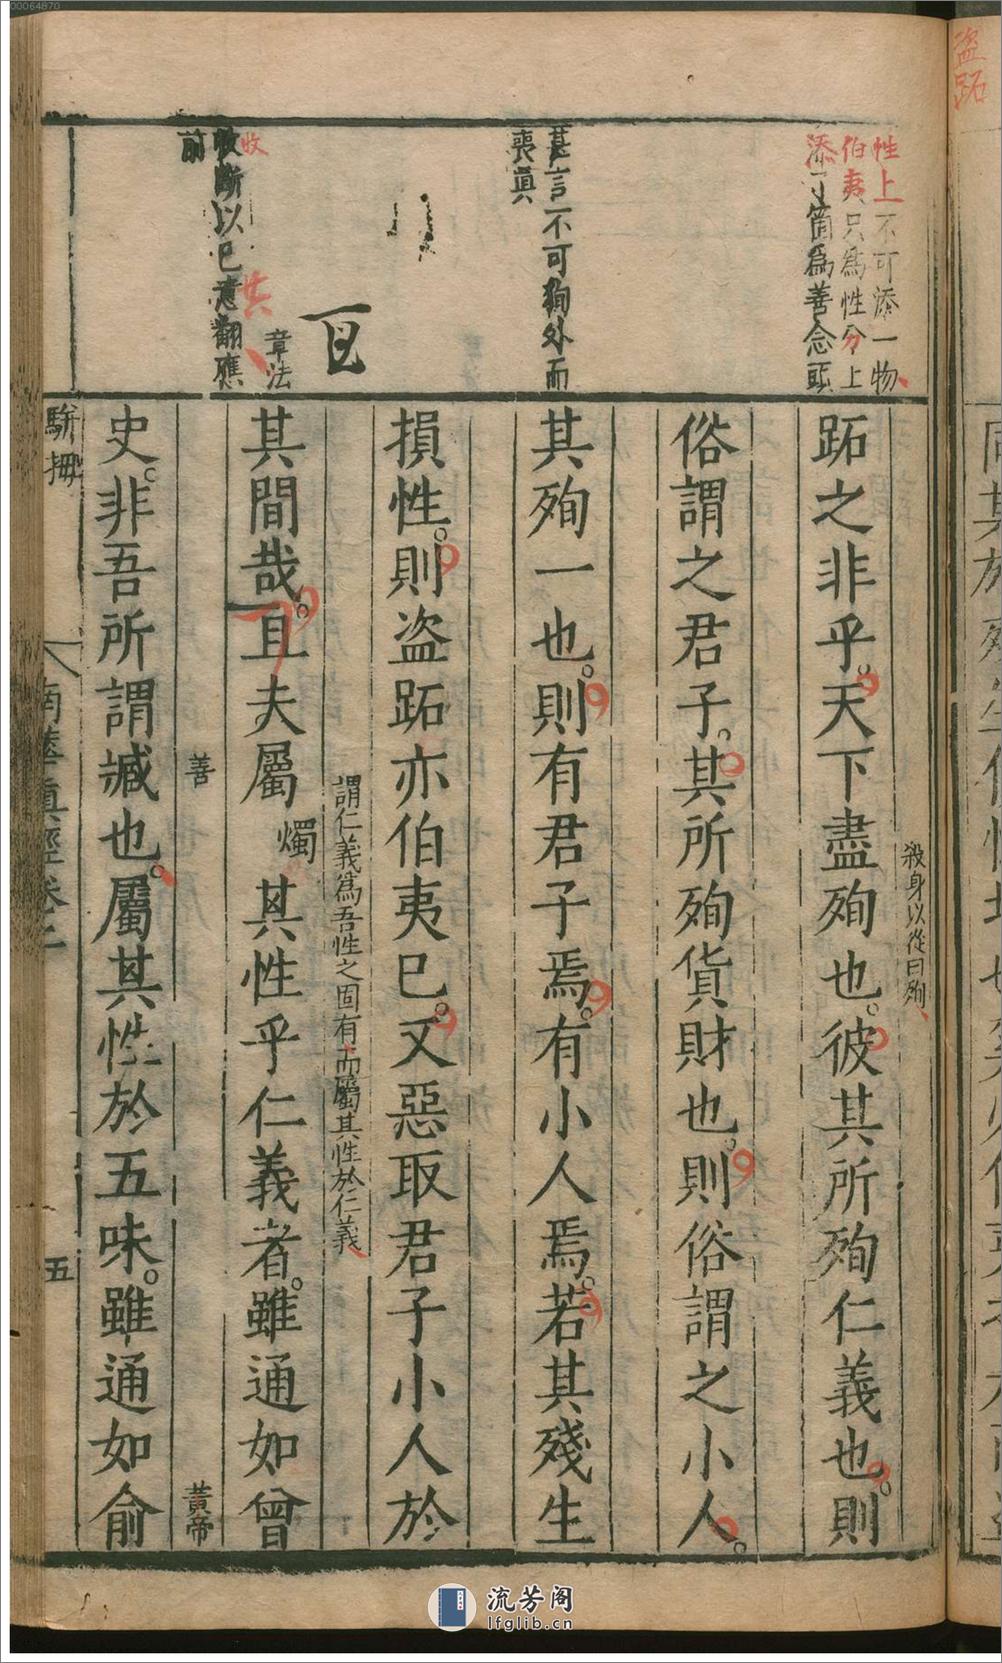 00064870
盜跖
性上不可添一物
伯夷只為性分上
添丁箇為善念頭
甚言不可狥外而
喪真
章法
收
收斷以已意翻應
前
殺身以從曰殉
跖之非乎。天下盡殉也。彼其所殉仁義也。則
俗謂之君子。其所殉貨財也。則俗謂之小人。
其殉一也。則有君子焉。有小人焉。若其殘生
損性。則盜跖亦伯夷已。又惡取君子小人於
謂仁義為吾性之固有而屬其性於仁義
其間哉。且夫屬燭其性乎仁義者。雖通如曾
善
黃帝
史。非吾所謂臧也。屬其性於五味。雖通如俞
駢拇
南華真經卷二
五
流芳阁
lfglib.cn